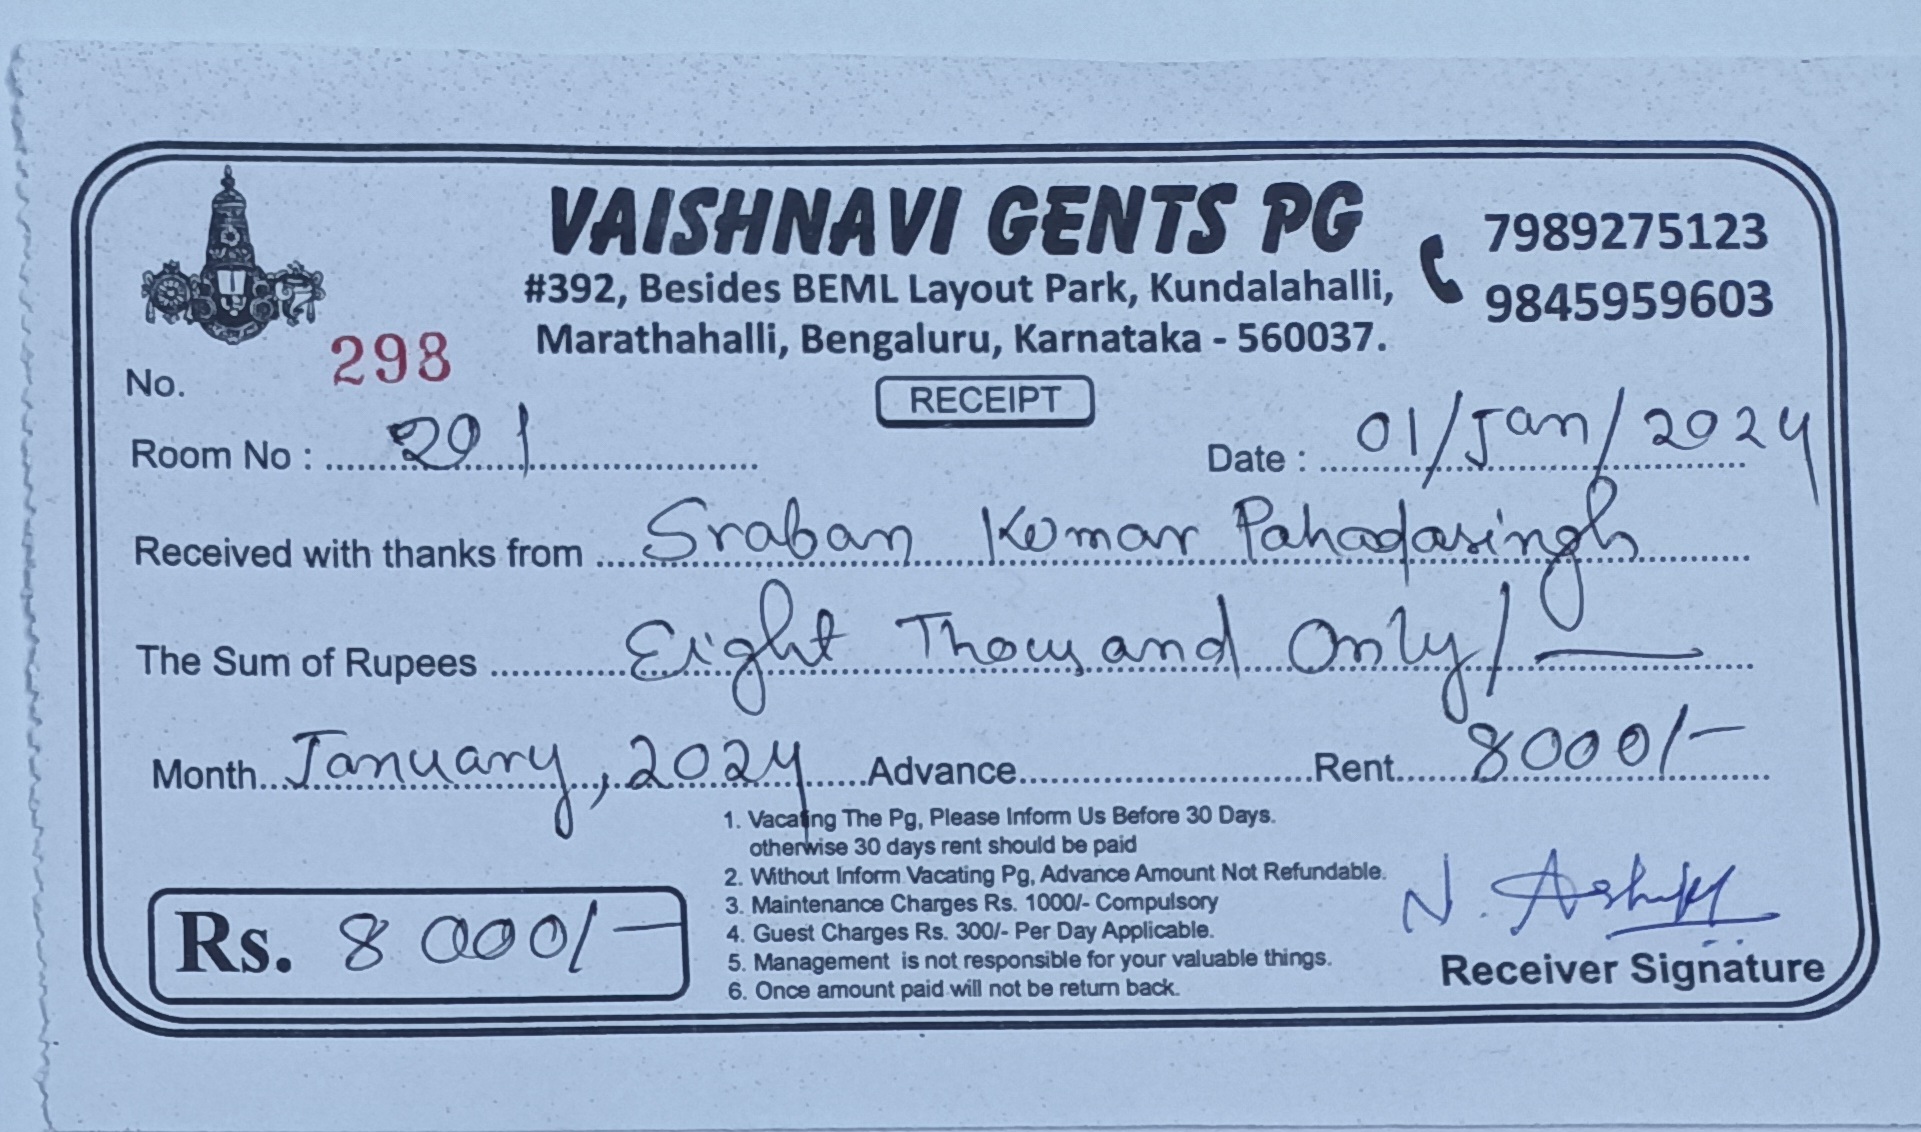 VAISHNAVI GENTS PG
7989275123
9845959603
#392, Besides BEML Layout Park, Kundalahalli,
Marathahalli, Bengaluru, Karnataka - 560037.
No. 298
RECEIPT
Room No : 201
Date : 01/Jan/2024
Received with thanks from Sraban Kumar Pahadasingh
The Sum of Rupees Eight Thousand Only/—
Month January, 2024 Advance Rent 8000/-
1. Vacating The Pg, Please Inform Us Before 30 Days.
otherwise 30 days rent should be paid
2. Without Inform Vacating Pg, Advance Amount Not Refundable.
3. Maintenance Charges Rs. 1000/- Compulsory
4. Guest Charges Rs. 300/- Per Day Applicable.
5. Management is not responsible for your valuable things.
6. Once amount paid will not be return back.
Rs. 8000/-
N.
Receiver Signature